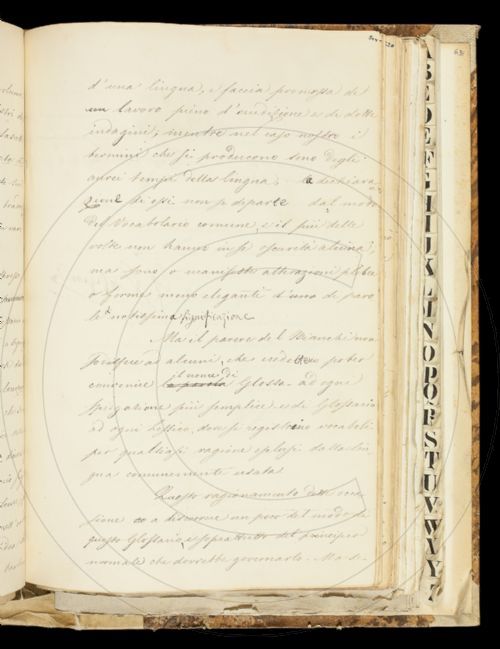 d'una lingua, e faccia promossa di
un lavoro pieno d'erudizione e di dotte
indagini, mentre nel caso nostro i
termini che si producono sono degli
aurei tempi della lingua, la dichiara
zione di essi non si diparte dal modo
del Vocabolario comune, e il più delle
volte non hanno in se oscurità alcuna,
ma sono o manifeste alterazioni plebee
o forme meno eleganti d'uso di paro
le notissima significazione
Ma il parere del Bianchi non
ad alcuni, che credettero poter
convenire la parola il nome di Glossa ad ogni
spiegazione più semplice e di Glossario
ad ogni Lessico, dove si registrino vocaboli
per qualsiasi ragione esclusi dalla lin
gua comunemente usata.
Questo ragionamento dette occa
sione a discorrere un poco del modo di
questo Glossario, e sopra tutto del principio
normale che dovrebbe governarlo. Ma si
A B C D E F G H I J K L M N O P Q R S T U V W X Y Z